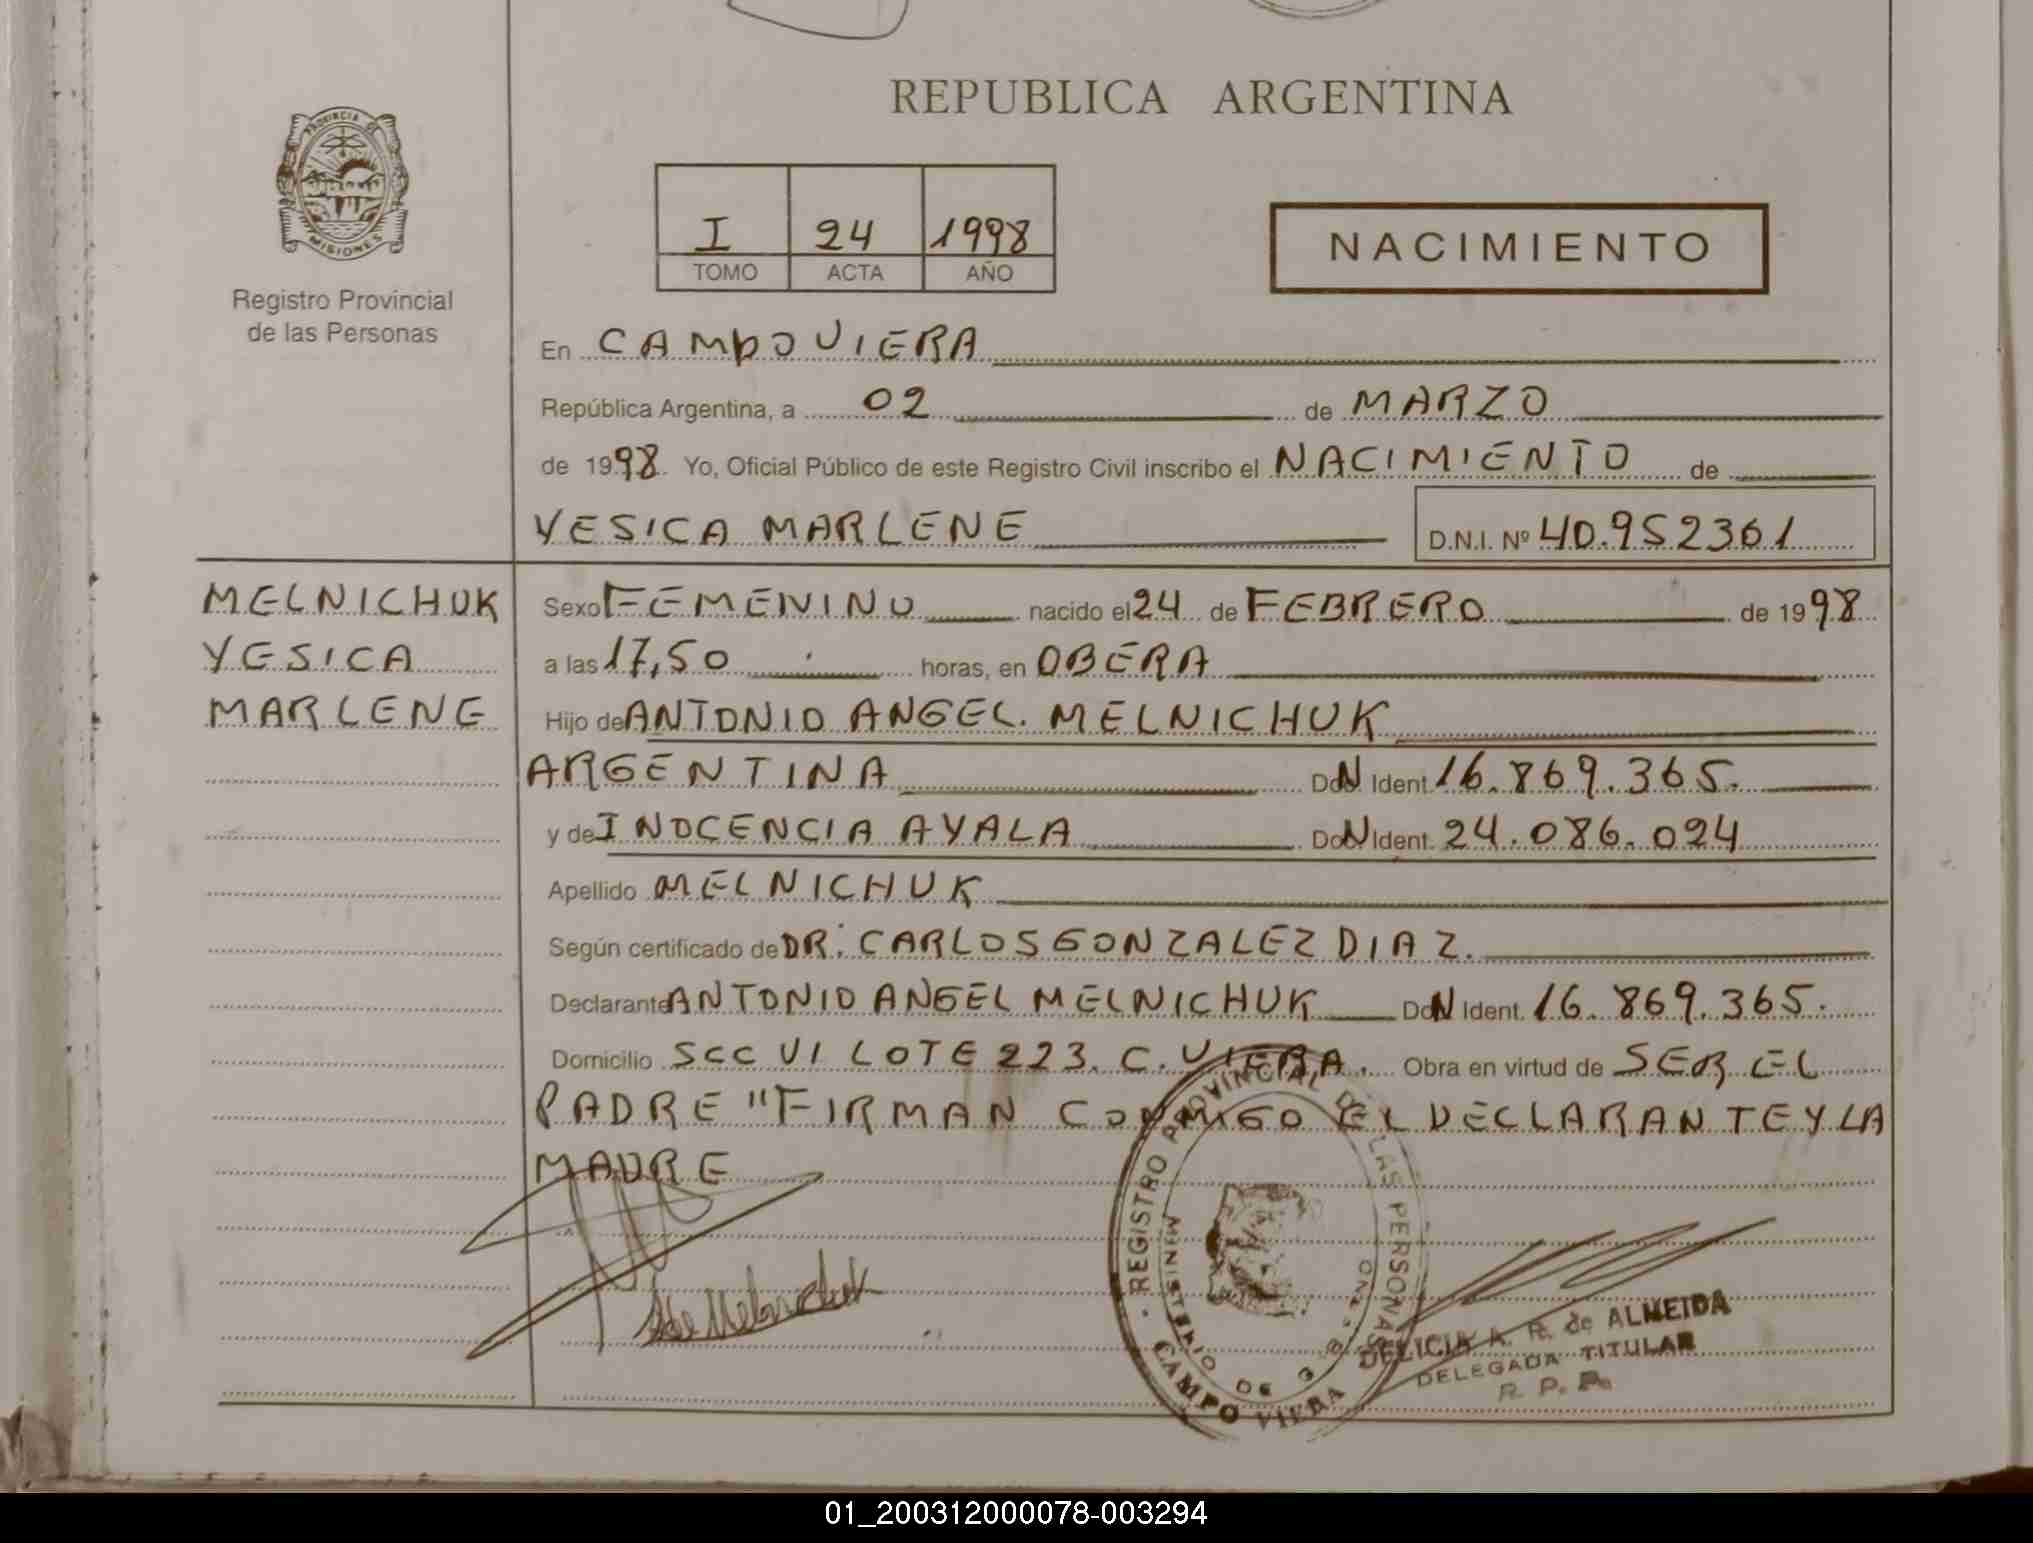 REPUBLICA ARGENTINA
PROVINCIA DE
MISIONES
Registro Provincial
de las Personas
I 24 1998
TOMO ACTA AÑO
NACIMIENTO
En CAMPO VIERA
República Argentina, a 02 de MARZO
de 1998. Yo, Oficial Público de este Registro Civil inscribo el NACIMIENTO de
YESICA MARLENE D.N.I. Nº 40.952361
MELNICHUK
YESICA
MARLENE
Sexo FEMENINO nacido el 24 de FEBRERO de 1998
a las 17,50 horas, en OBERA
Hijo de ANTONIO ANGEL. MELNICHUK
ARGENTINA DON Ident 16.869.365.
y de INOCENCIA AYALA DON Ident. 24.086.024
Apellido MELNICHUK
Según certificado de DR: CARLOS GONZALEZ DIAZ.
Declarante ANTONIO ANGEL MELNICHUK DON Ident. 16.869.365.
Domicilio SCC VI LOTE 223. C. VIERA. Obra en virtud de SER EL
PADRE "FIRMAN CONMIGO EL DECLARANTE Y LA
MADRE
REGISTRO PROVINCIAL DE LAS PERSONAS
MINISTERIO DE GOB.
CAMPO VIERA
DELICIA A. R. de ALMEIDA
DELEGADA TITULAR
R. P. P.
01_200312000078-003294